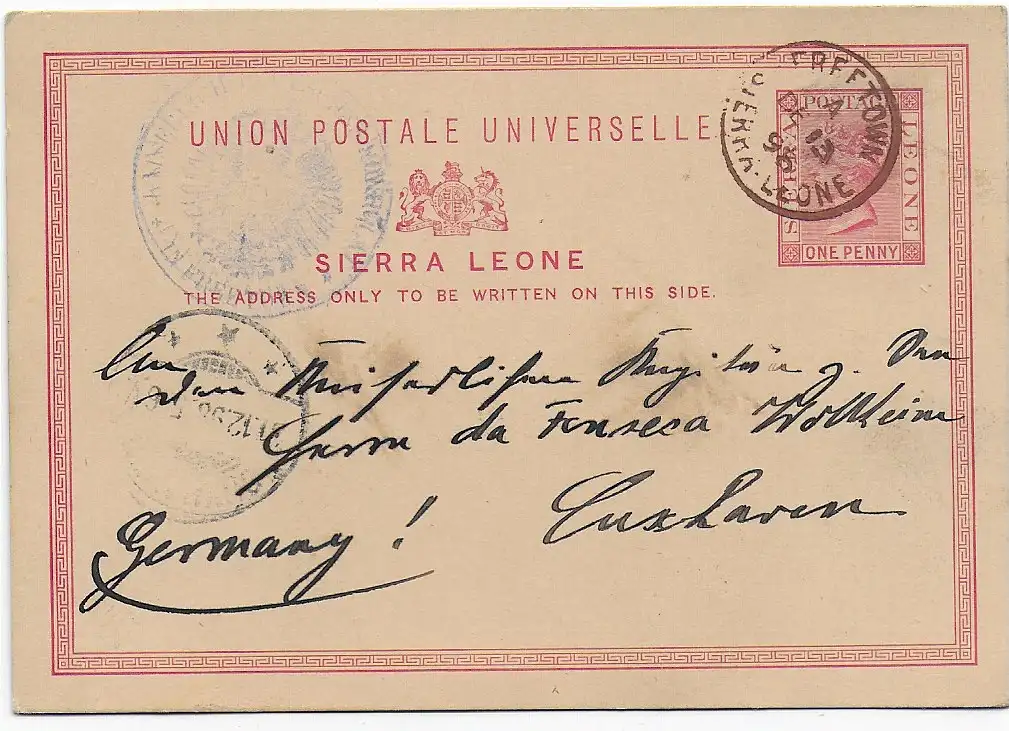 UNION POSTALE UNIVERSELLE
SIERRA LEONE
THE ADDRESS ONLY TO BE WRITTEN ON THIS SIDE.
FREETOWN
A
DE
98
SIERRA-LEONE
POSTA
LEONE
S
ONE PENNY
An
den Kaiserlichen
Herrn da Fonseca Wollheim
Cuxhaven
Germany!
.12.98